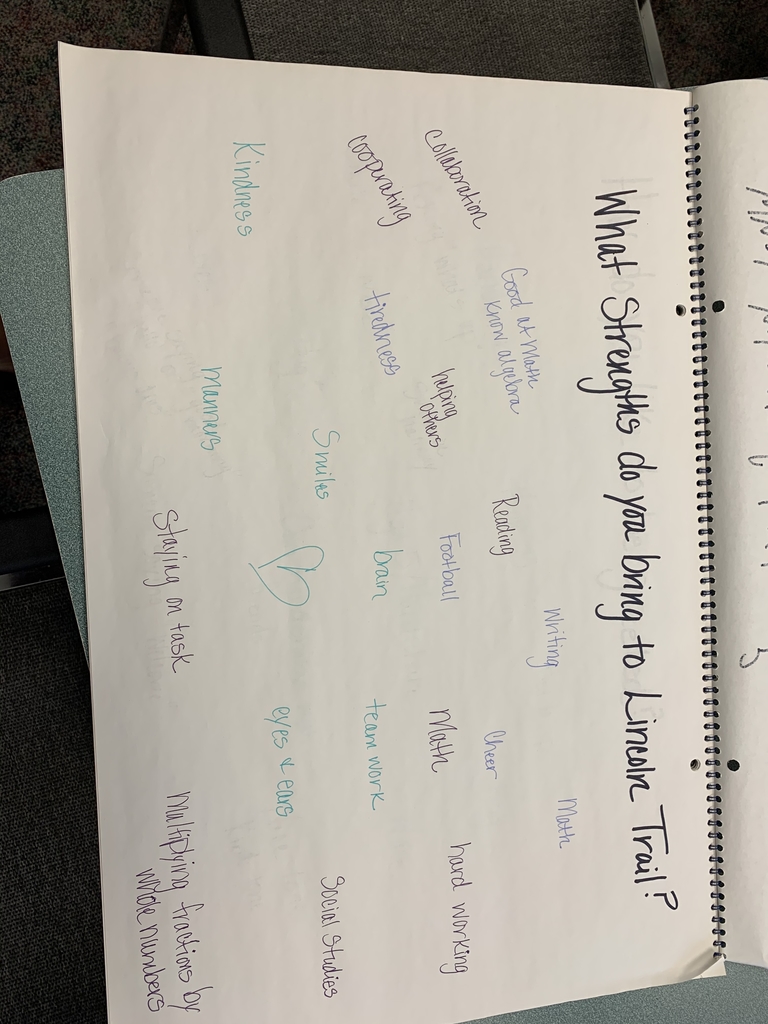 What Strengths do you bring to Lincoln Trail?
Math
Writing
Good at Math
know algebra
Reading
Cheer
Collaboration
helping
others
Football
Math
hard working
cooperating
tiredness
brain
team work
Smiles
Social Studies
Kindness
eyes & ears
manners
Staying on task
Multiplying fractions by
whole numbers